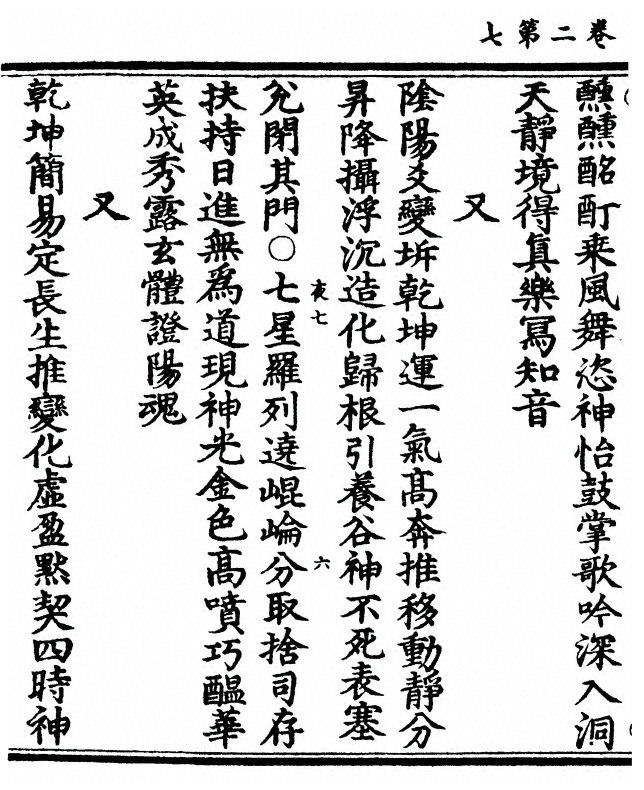 卷二第七
醺醺酩酊乗風舞恣神怡鼓掌歌吟深入洞
天靜境得真樂冩知音
又
陰陽爻變坼乾坤運一氣髙奔推移動靜分
昇降攝浮沉造化歸根引養谷神不死表塞
兊閉其門〇七星羅列遶崐崘分取捨司存
夜七
六
扶持日進無為道現神光金色髙噴巧醖華
英成秀露玄體證陽魂
又
乾坤簡易定長生推變化虛盈黙契四時神